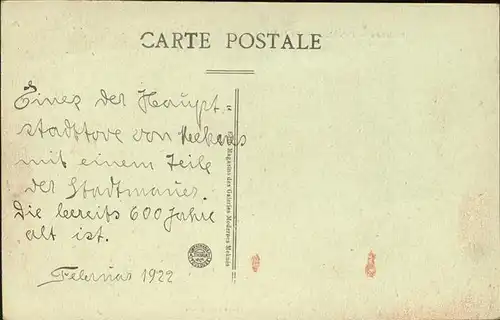 CARTE POSTALE
Eines der Haupt=
stadttore von Meknes
mit einem Teile
der Stadtmauer.
Die bereits 600 Jahre
alt ist.
Februar 1922
Magasins des Galeries Modernes Meknès